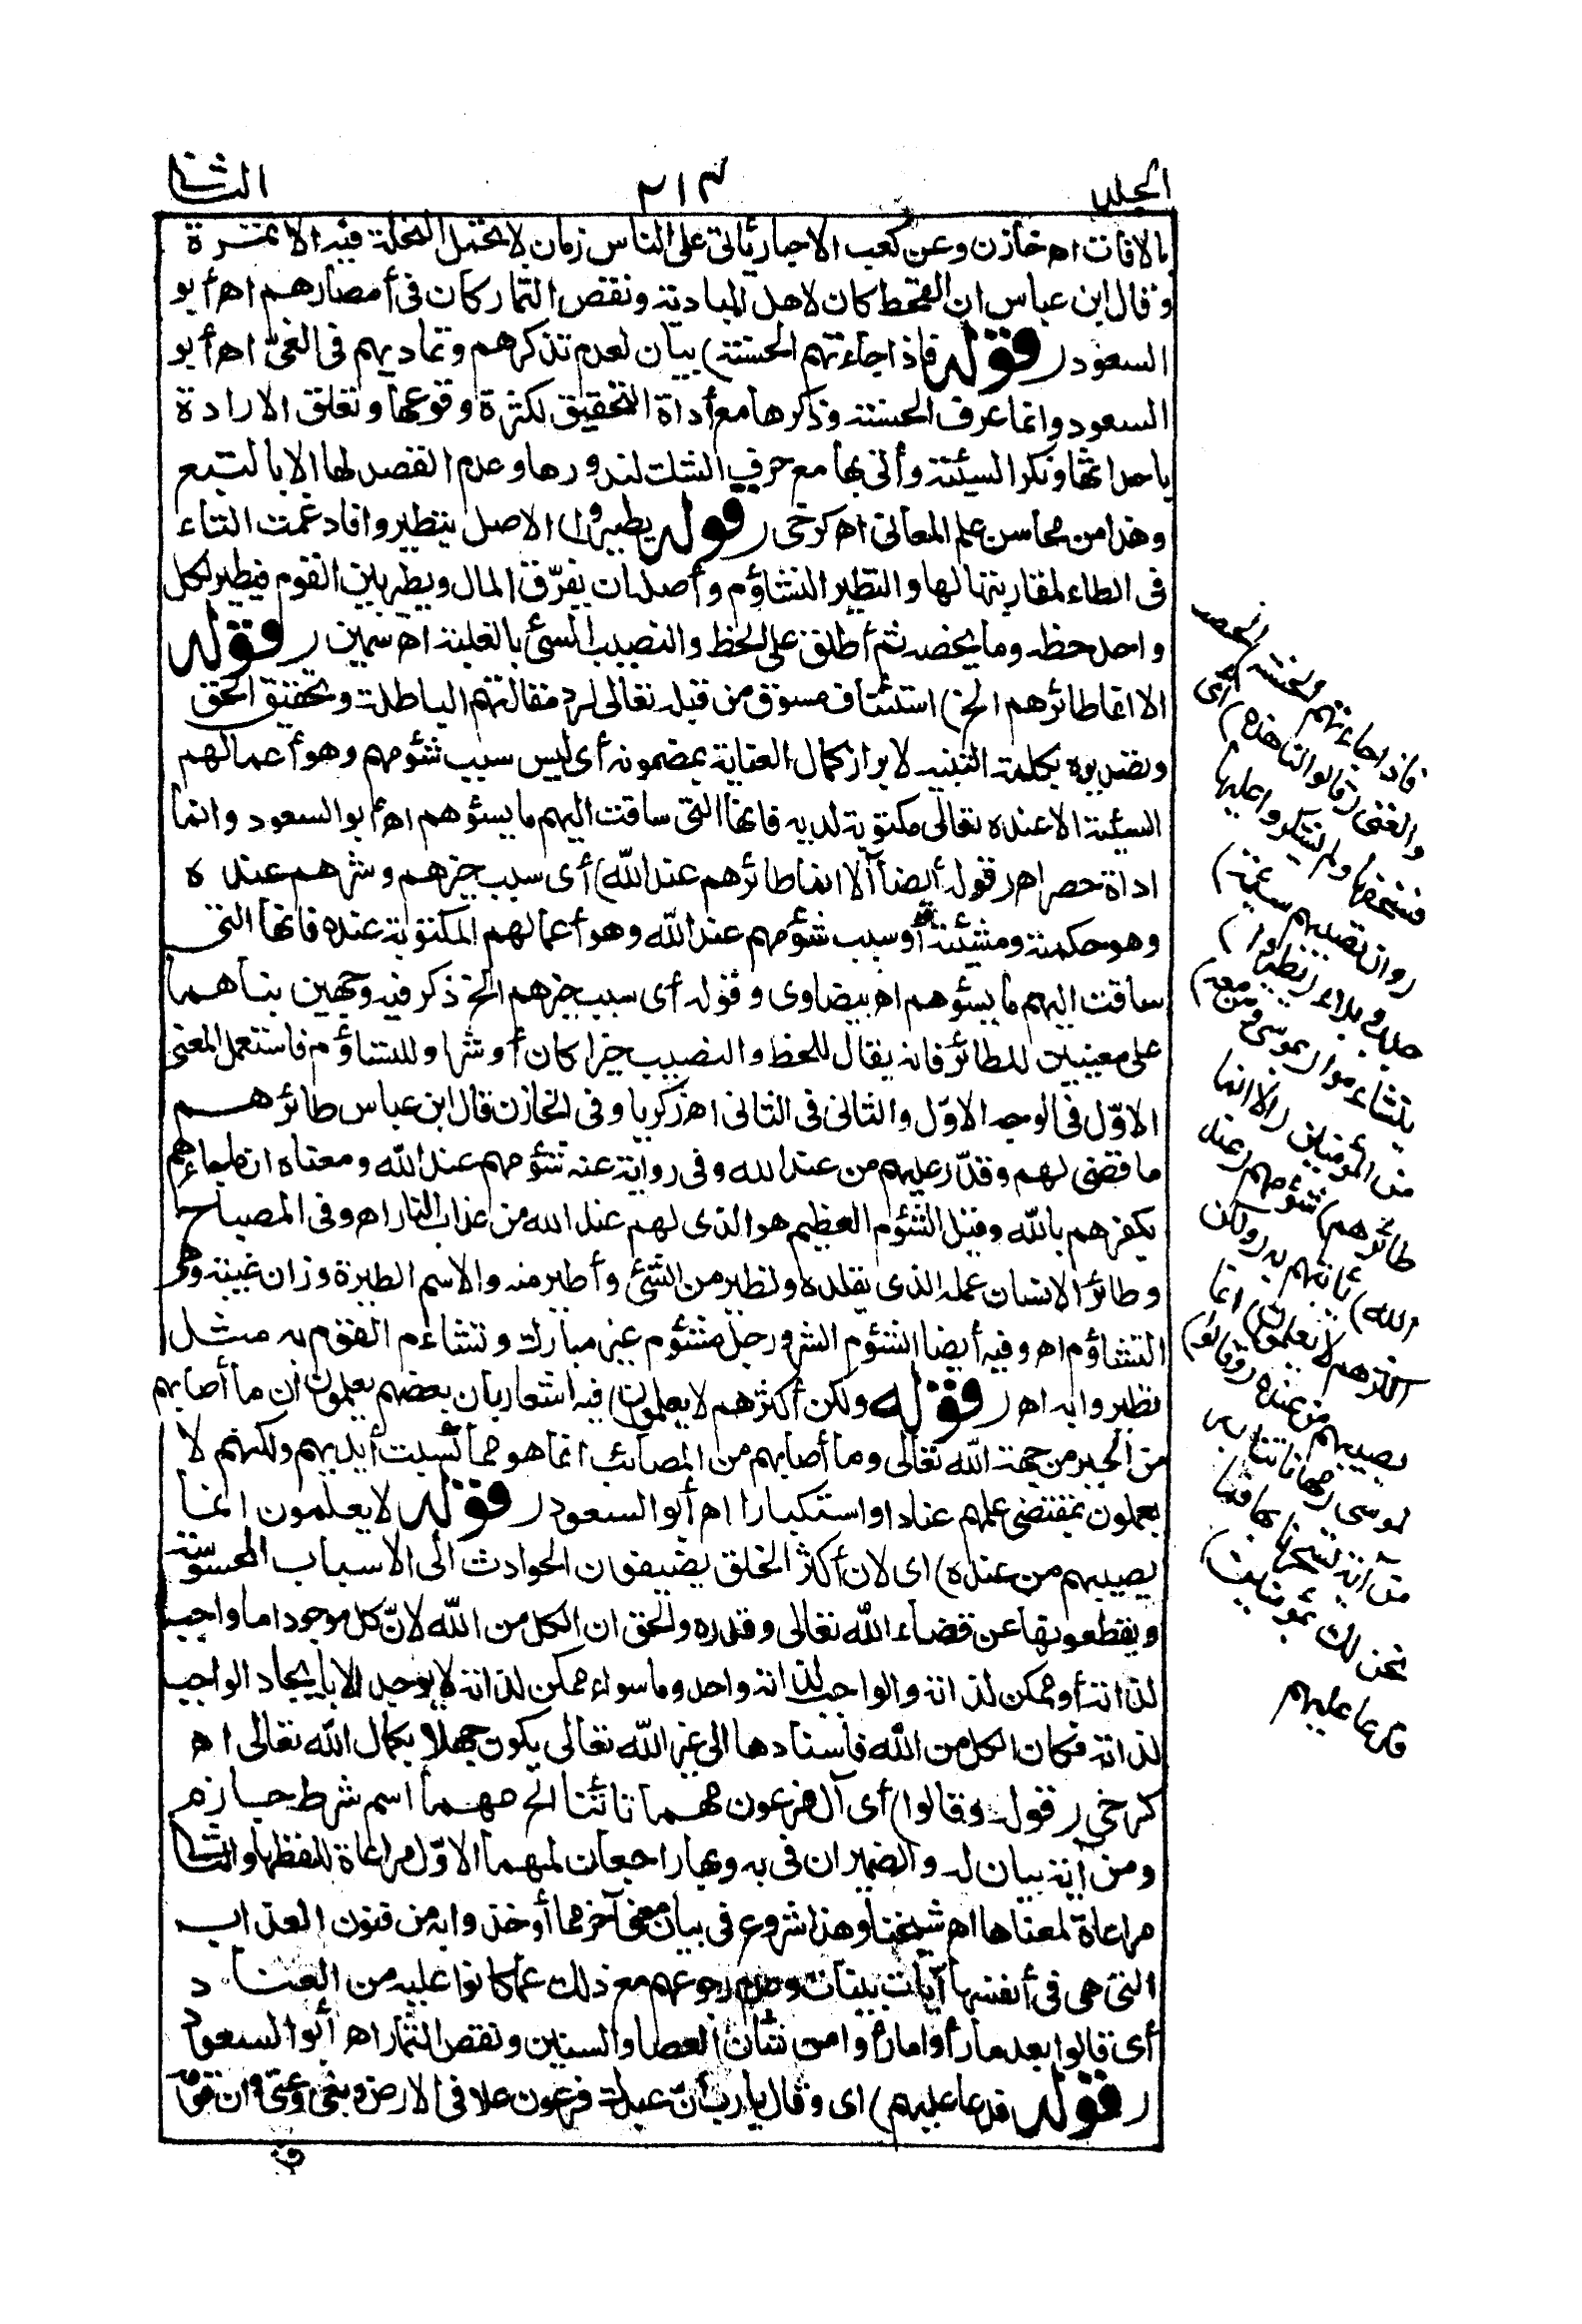 الجلد ٢١٣ الثانى
بالافات اه خازن وعن كعب الاحبار يأتى على الناس زمان لا تحمل النخلة فيه الا تمرة
وقال ابن عباس ان القحط كان لاهل البادية ونقص الثمار كان فى أمصارهم اه أبو
السعود (قوله فاذا جاءتهم الحسنة) بيان لعدم تذكرهم وتماديهم فى الغىّ اه أبو
السعود وانما عرف الحسنة وذكرها مع أداة التحقيق لكثرة وقوعها وتعلق الارادة
باحداثها ونكر السيئة وأتى بها مع حرف الشك لندورها وعدم القصد لها الا بالتبع
وهذا من محاسن علم المعانى اه كرخى (قوله يطيروا) الاصل يتطيروا فادغمت التاء
فى الطاء لمقاربتها لها والتطير التشاؤم وأصله ان يفرّق المال ويطير بين القوم فيطير لكل
واحد حظه وما يخصه ثم أطلق على الحظ والنصيب السئ بالغلبة اه سمين (قوله
الا انما طائرهم الخ) استئناف مسوق من قبله تعالى لرد مقالتهم الباطلة وتحقيق الحق
وتصديره بكلمة التنبيه لابراز كمال العناية بمضمونه أى ليس سبب شؤمهم وهو أعمالهم
السيئة الا عنده تعالى مكتوبة لديه فانها التى ساقت اليهم ما يسؤهم اه أبو السعود وانما
اداة حصر اه (قوله أيضا ألا انما طائرهم عند الله) أى سبب خيرهم وشرهم عنده
وهو حكمته ومشيئته أو سبب شؤمهم عند الله وهو أعمالهم المكتوبة عنده فانها التى
ساقت اليهم ما يسؤهم اه بيضاوى وقوله أى سبب خيرهم الخ ذكر فيه وجهين بناهما
على معنيين للطائر فانه يقال للحظ والنصيب خيرا كان أو شرا وللتشاؤم فاستعمل المعنى
الاوّل فى الوجه الاوّل والثانى فى الثانى اه زكريا وفى الخازن قال ابن عباس طائرهم
ما قضى لهم وقدّر عليهم من عند الله وفى رواية عنه شؤمهم عند الله ومعناه انما جاءهم
بكفرهم بالله وقيل الشؤم العظيم هو الذى لهم عند الله من عذاب النار اه وفى المصباح
وطائر الانسان عمله الذى يقلده وتطير من الشئ وأطير منه والاسم الطيرة وزان عنبة وهى
التشاؤم اه وفيه أيضا الشؤم الشر ورجل مشؤم غير مبارك وتشاءم القوم به مثل
تطيروا به اه (قوله ولكن أكثرهم لا يعلمون) فيه اشعار بان بعضهم يعلمون ان ما أصابهم
من الخير من جهة الله تعالى وما أصابهم من المصائب انما هو مما كسبت أيديهم ولكنهم لا
يعملون بمقتضى علمهم عنادا واستكبارا اه أبو السعود (قوله لا يعلمون انما
يصيبهم من عنده) اى لان أكثر الخلق يضيفون الحوادث الى الاسباب المحسوسة
ويقطعونها عن قضاء الله تعالى وقدره والحق ان الكل من الله لانّ كل موجود اما واجب
لذاته أو ممكن لذاته والواجب لذاته واحد وما سواه ممكن لذاته لا يوجد الا بايجاد الواجب
لذاته فكان الكل من الله فاسنادها الى غير الله تعالى يكون جهلا بكمال الله تعالى اه
كرخي (قوله وقالوا) أى آل فرعون مهما تاتنا الخ مهما اسم شرط جازم
ومن آية بيان له والضميران فى به وبها راجعان لمهما الاوّل مراعاة للفظها والثانى
مراعاة لمعناها اه شيخنا وهذا شروع فى بيان معنى آخر مما أوخذوا به من فنون العذاب
التى هى فى أنفسها آيات بينات وعدم رجوعهم مع ذلك عما كانوا عليه من العناد
أى قالوا بعد ما رأوا ما رأوا من شأن العصا والسنين ونقص الثمار اه أبو السعود
(قوله فدعا عليهم) اى وقال يا رب انّ عبدك فرعون علا فى الارض وبغى وعتى وان قومه
فاذا جاءتهم الحسنة) الخصب
والغنى (قالوا لنا هذه) أى
نستحقها ولم يشكروا عليها
(وان تصبهم سيئة)
جدب وبلاء (يطيروا)
يتشاءموا (بموسى ومن معه)
من المؤمنين (الا انما
طائرهم) شؤمهم (عند
الله) يأتيهم به (ولكن
اكثرهم لا يعلمون) انما
يصيبهم من عنده (وقالوا)
لموسى (مهما تاتنا به
من آية لتسحرنا بها فما
نحن لك بمؤمنين)
فدعا عليهم